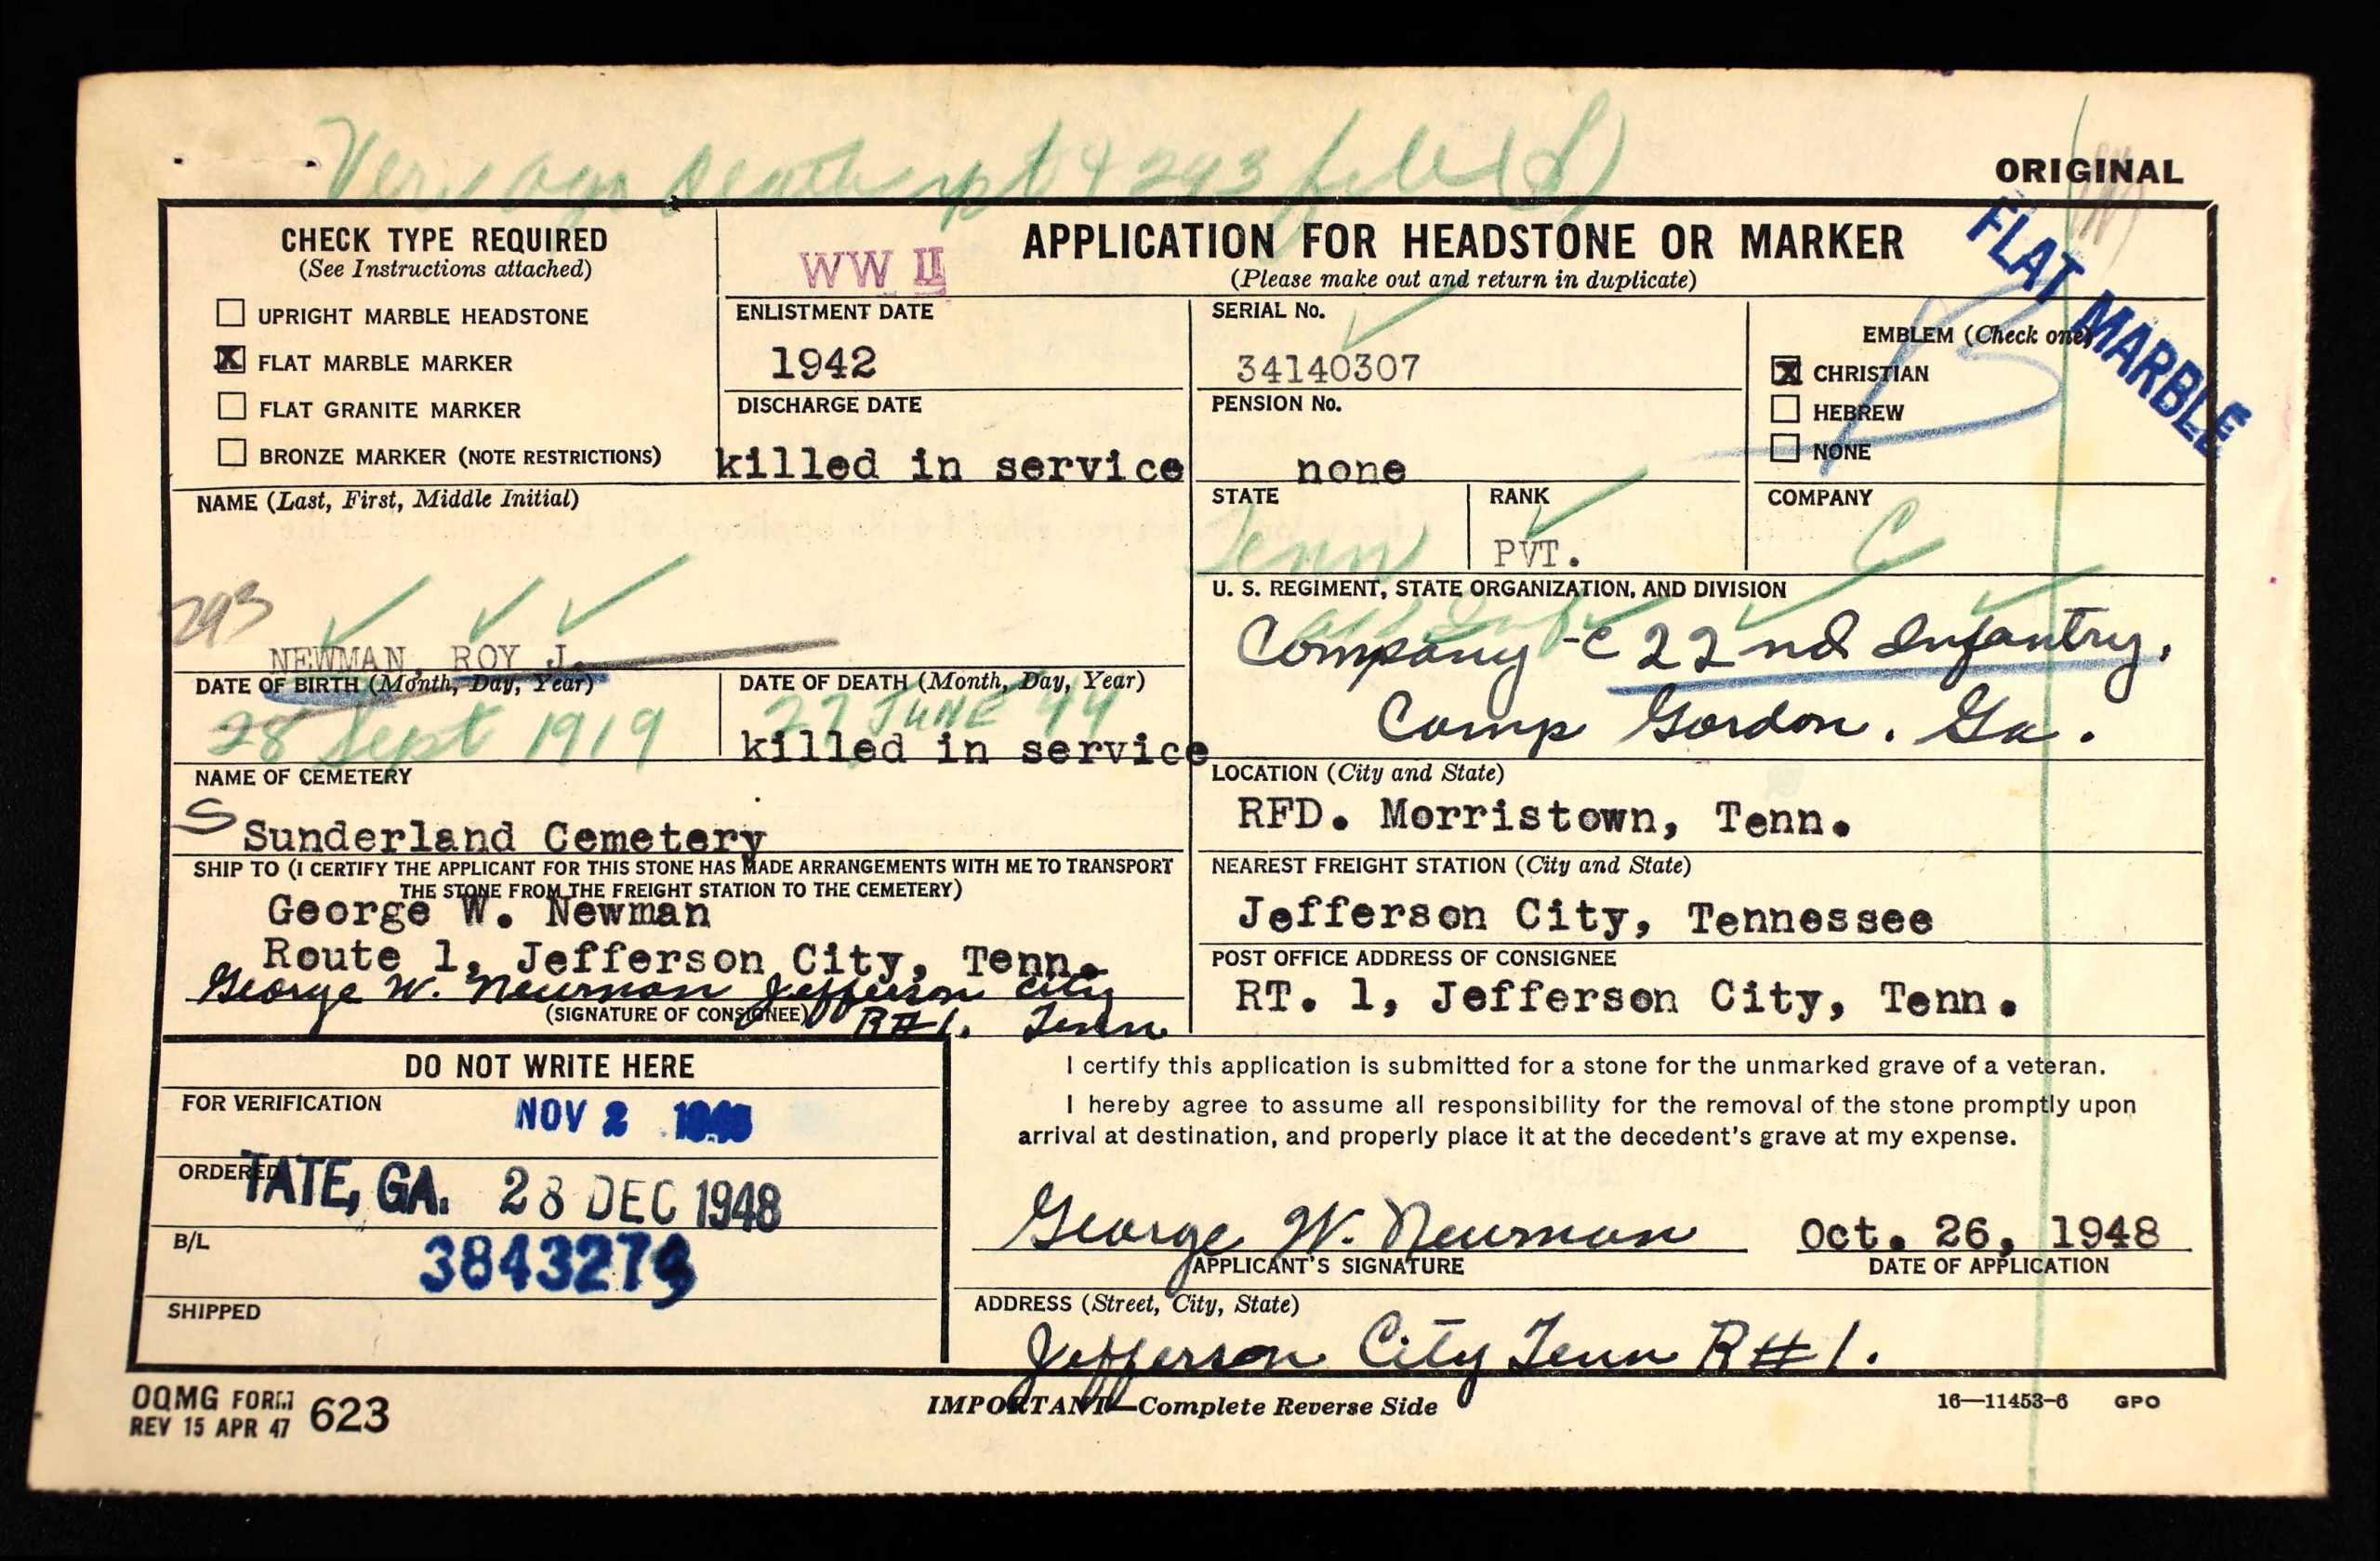 death rpt & 293 file (S)
ORIGINAL
CHECK TYPE REQUIRED
(See Instructions attached)
UPRIGHT MARBLE HEADSTONE
X FLAT MARBLE MARKER
FLAT GRANITE MARKER
BRONZE MARKER (NOTE RESTRICTIONS)
WW II
APPLICATION FOR HEADSTONE OR MARKER
(Please make out and return in duplicate)
FLAT MARBLE
ENLISTMENT DATE
1942
DISCHARGE DATE
killed in service
SERIAL No.
34140307
PENSION No.
none
EMBLEM (Check one)
X CHRISTIAN
HEBREW
NONE
NAME (Last, First, Middle Initial)
293
NEWMAN, ROY J.
STATE
Tenn
RANK
PVT.
COMPANY
C
U. S. REGIMENT, STATE ORGANIZATION, AND DIVISION
Company -C 22nd Infantry.
Camp Gordon. Ga.
DATE OF BIRTH (Month, Day, Year)
28 Sept 1919
DATE OF DEATH (Month, Day, Year)
27 JUNE 44
killed in service
NAME OF CEMETERY
S
Sunderland Cemetery
LOCATION (City and State)
RFD. Morristown, Tenn.
SHIP TO (I CERTIFY THE APPLICANT FOR THIS STONE HAS MADE ARRANGEMENTS WITH ME TO TRANSPORT
THE STONE FROM THE FREIGHT STATION TO THE CEMETERY)
George W. Newman
Route 1, Jefferson City, Tenn.
George W. Newman Jefferson City
(SIGNATURE OF CONSIGNEE) R#1. Tenn
NEAREST FREIGHT STATION (City and State)
Jefferson City, Tennessee
POST OFFICE ADDRESS OF CONSIGNEE
RT. 1, Jefferson City, Tenn.
DO NOT WRITE HERE
FOR VERIFICATION
NOV 2
ORDERED
TATE, GA. 28 DEC 1948
B/L
3843279
SHIPPED
I certify this application is submitted for a stone for the unmarked grave of a veteran.
I hereby agree to assume all responsibility for the removal of the stone promptly upon
arrival at destination, and properly place it at the decedent's grave at my expense.
George W. Newman
APPLICANT'S SIGNATURE
Oct. 26, 1948
DATE OF APPLICATION
ADDRESS (Street, City, State)
Jefferson City Tenn R#1.
OQMG FORM
REV 15 APR 47 623
IMPORTANT—Complete Reverse Side
16—11453-6 GPO